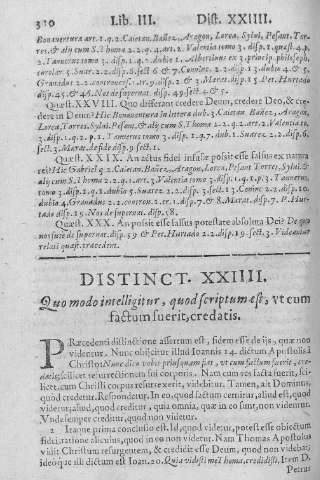 310 Lib. III. Dist. XXIIII.
Bonaventura art. 1. q. 2. Caietan. Bañez, Aragon, Lorca, Sylui, Pesant. Tor-
res. & alij cum S. Thoma 2. 2. q. 2. art. 2. Valentia tomo 3. disp. 1. quæst. 4. p.
2. Tannerus tomo 3. disp. 1. q. 2. dubio 1. Albertinus
Suar. 2. 2. disp. 6. sect. 6 & 7. Coninc. 2. 2. disp. 13. dubio 4 & 5.
Granados 2. 2. disp. 2. & 3. Pet. Hurtado
disp. 45. & 46. Nos de supernat. disp. 49. sect. 4 & 5.
Quæst. XXVIII. Quo differant credere Deum, credere Deo, & cre-
dere in Deum? Hic Bonaventura in littera dub. 3. Caietan. Bañez, Aragon,
Lorca, Torres, Sylui. Pesant. & alij cum S. Thoma 2. 2. q. 2. art. 2. Valentia to.
3. disp. 1. q. 2. p. 1. Tannerus tomo 3. disp. 1. q. 7. dub. 1. Suarez 2. 2. disp. 6.
sect. 3. Marat. de fide disp. 9. sect. 1.
Quæst. XXIX. An actus fidei infusæ possit esse falsus ex natura
rei? Hic Gabriel q. 2. Caietan, Bañez, Aragon, Lorca, Pesant. Torres, Sylui. &
alij cum S. Thoma 2. 2. q. 1. art. 3. Valentia tomo 3. disp. 1. q. 1. p. 3. Tannerus
tomo 3. disp. 1. q. 2. dubio 3. Suarez 2. 2. disp. 3. sect. 13. Coninc 2. 2. disp. 10.
dubio 4. Granados 2. 2. contron. 2. tr. 1. disp. 7. & 8. Marat. disp. 7. P. Hur-
tado disp. 25. Nos de supernat. disp. 58.
Quæst. XXX. An possit esse falsus potestate absoluta Dei? De quo
nos fuse de supernat. disp. 59 & Pet. Hurtado 2. 2. disp. 19. sect. 3. Videantur
reliqui quæst. præcedent.
DISTINCT. XXIIII.
Quo modo intelligitur, quod scriptum est, vt cum
factum fuerit, credatis.
PRæcedenti distinctione assertum est, fidem esse de ijs, quæ non
videntur. Nunc obijcitur illud Ioannis 14. dictum Apostolis à
Christo: Nunc dico vobis priusquam fiat, vt cum factum fuerit, cre-
datis; scilicet resurrectionem sui corporis. Nam cum res facta fuerit, sci-
licet, cum Christi corpus resurrexerit, videbitur. Tamen, ait Dominus,
quod credetur. Respondetur, In eo, quod factum cernitur, aliud est, quod
videtur; aliud, quod creditur, quia omnia, quæ in eo sunt, non videntur.
Vnde semper creditur, quod non videtur.
2 Itaque prima conclusio est. Id, quod videtur, potest esse obiectum
fidei, ratione alicuius, quod in eo non videtur. Nam Thomas Apostolus
vidit Christum resurgentem, & credidit esse Deum, quod non videbat;
ideoque illi dictum est Ioan. 20. Quia vidisti me Thoma, credidisti. Item D.
Petrus